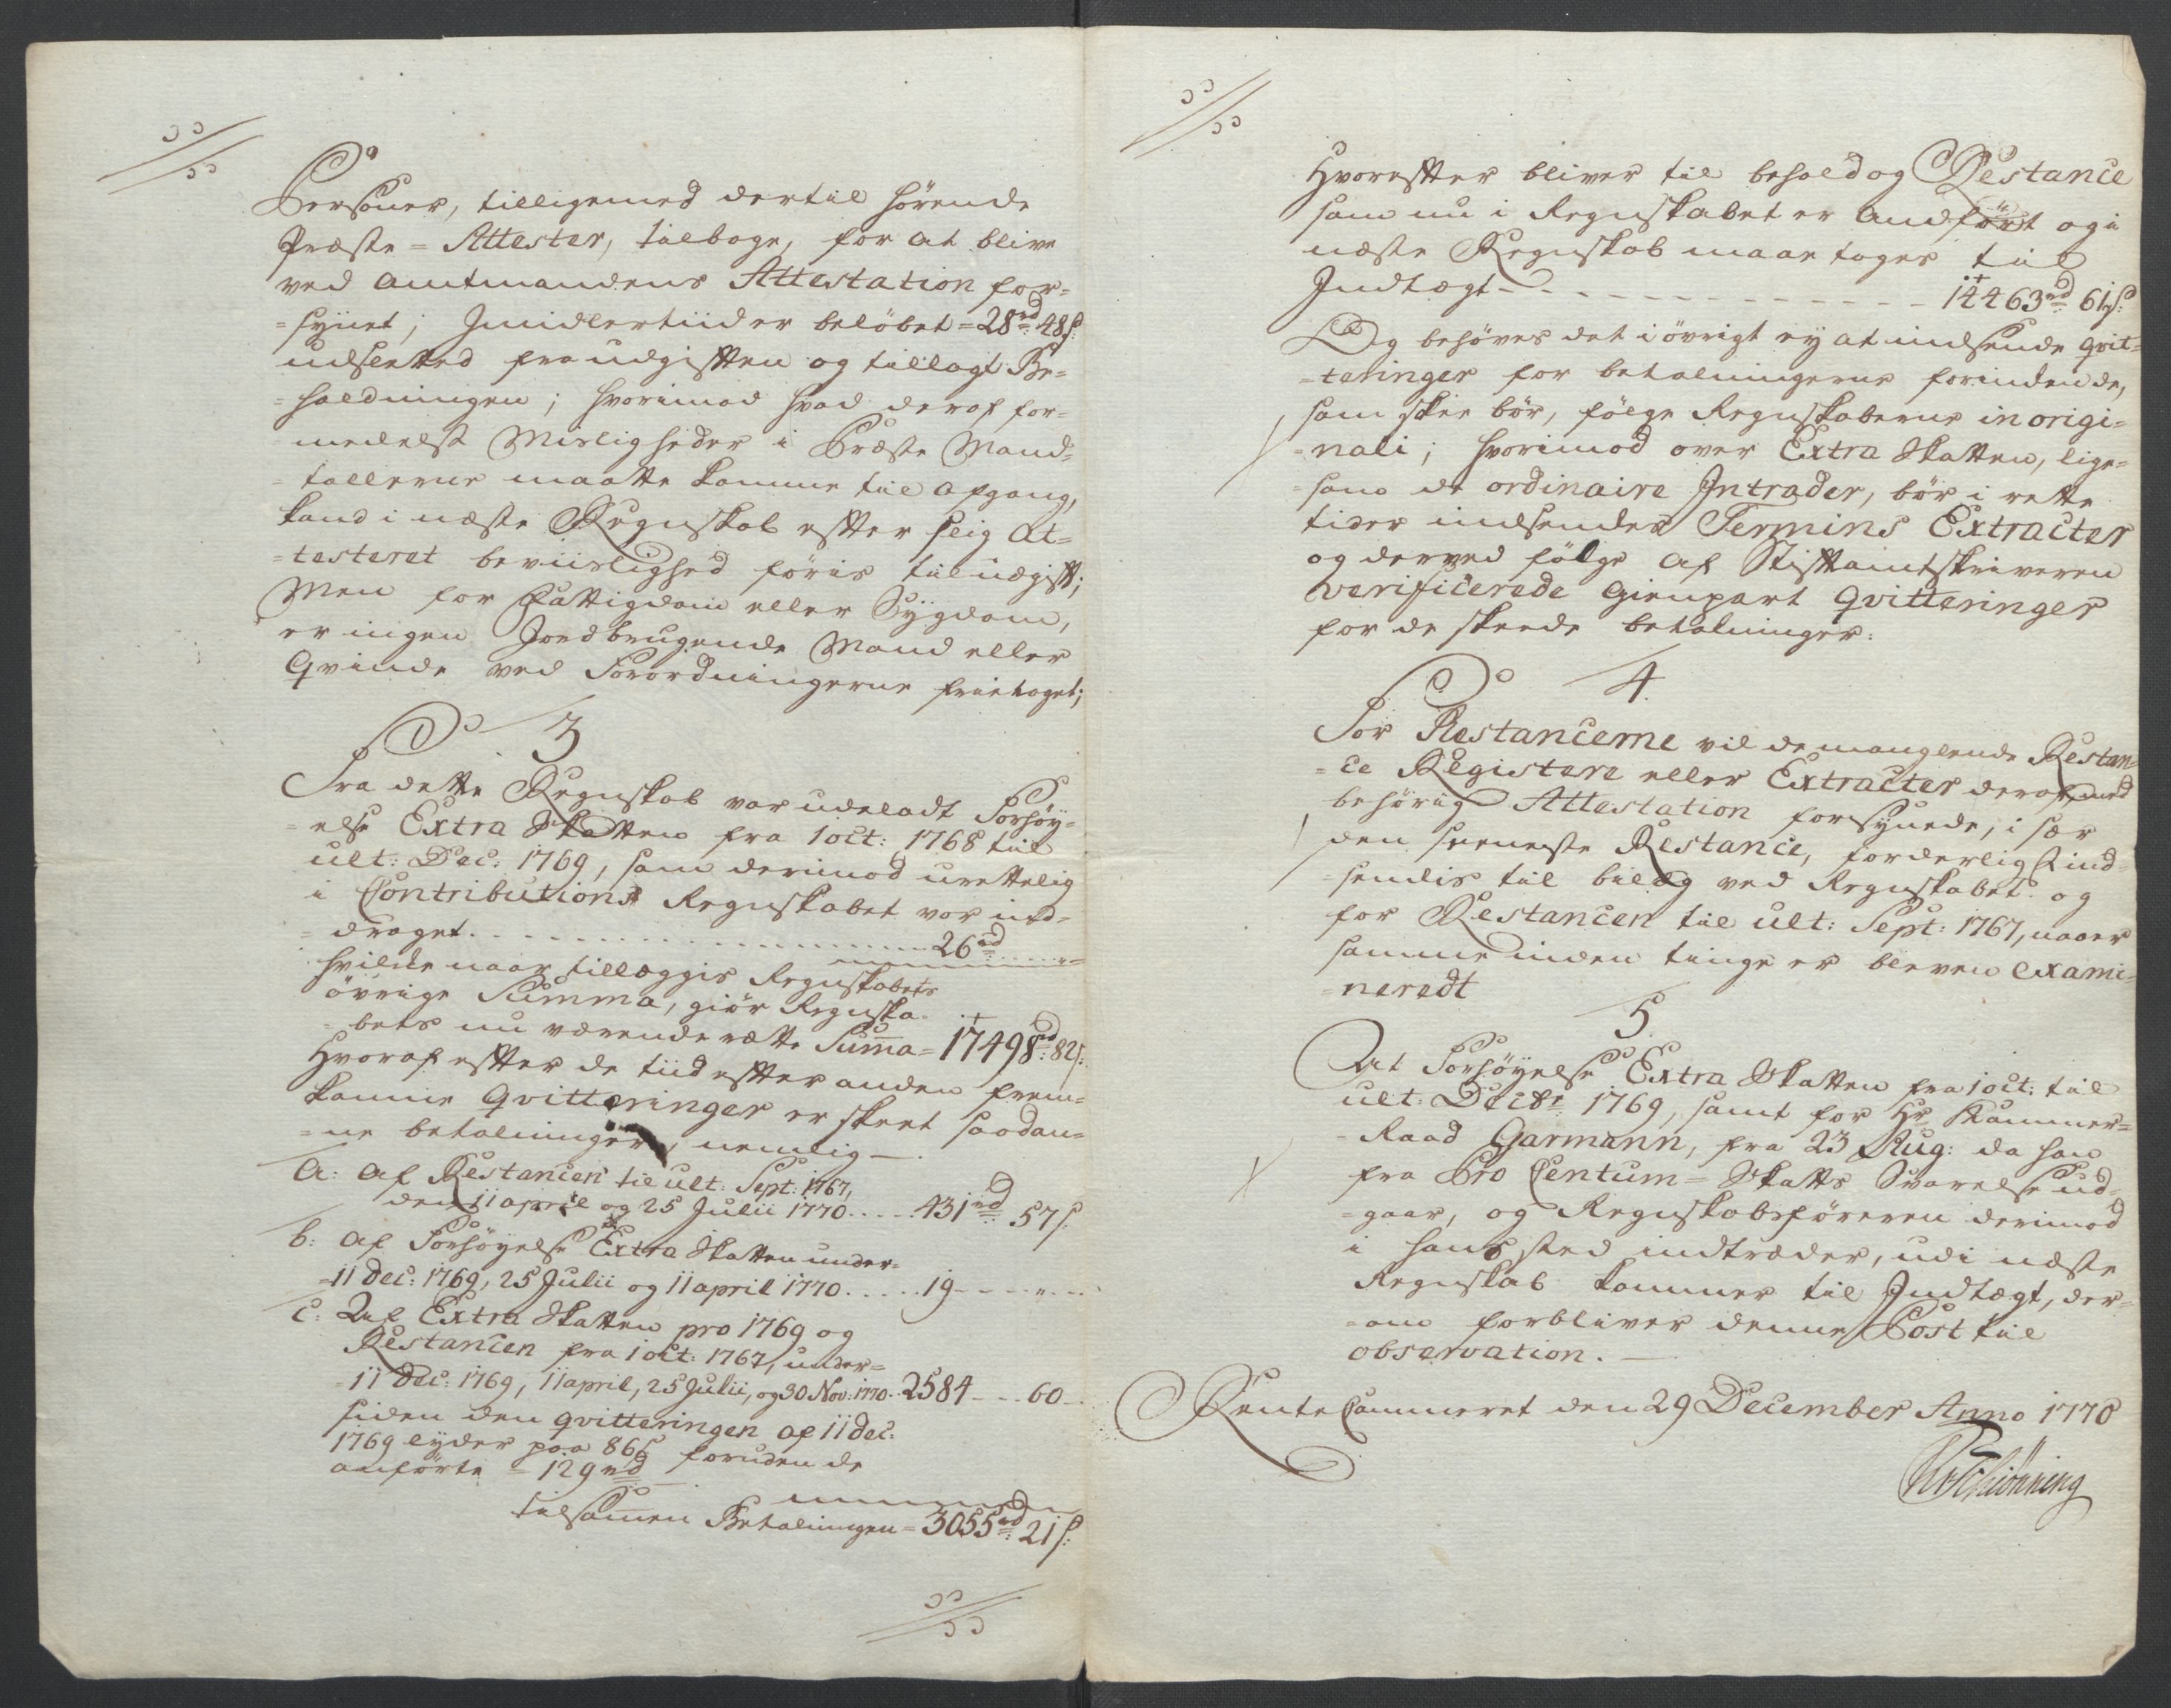 Persohner, tilligemed dertil hörende
Præste = Attester, tilbage, for at blive
ved Amtmandens Attestation for=
=synet; Imidlertiid er beløbet = 28 rd 48 s:
udslettet fra udgiften og tillagt Be=
=holdningen; hvorimod hvad deraf for=
medelst Misligheder i Præste Mand=
=tallerne maatte komme til afgang,
kand i næste Regnskab efter slig At=
=testeret beviislighed föris til udgift;
Men for Fattigdom eller Sÿgdom,
er ingen Jordbrugende Mand eller
Qvinde ved Forordningerne frietaget;
3
Fra dette Regnskab var udeladt Forhöy=
=else Extra Skatten fra 1 oct: 1768 til
ult: Dec: 1769, som derimod urettelig
i Contributions Regnskabet var ind=
=draget. 26 rd „
hvilke naar tillæggis Regnskabets
övrige Summa, giör Regnska=
=bets nu værende rette Suma = 17498 rd: 82 s:
Hvoraf efter de tiid efter anden frem=
komne Qvitteringer er skeet saadan=
=ne betalninger, nemlig —
a: af Restancen til ult: Sept: 1767,
den 11 april og 25 Julii 1770 431 rd 57 s:
b: af Forhöyelse Extra Skatten under=
=11 dec: 1769, 25 Julii og 11 april 1770 19 „
c: Af Extra Skatten pro 1769 og
Restancen fra 1 oct: 1767, under=
=11 dec: 1769, 11 april, 25 Julii, og 30 Nov: 1770 2584 60
siden den qvitteringen af 11 dec:
1769 lyder paa 86 s foruden de
anförte = 129 rd
tilsamen Betalningen = 3055 rd: 21 s:
Hvorefter bliver til behold og Restance
som nu i Regnskabet er andfört og i
næste Regnskab maae tages til
Indtægt 14463 rd 61 s:
Og behöves det i övrigt ey at indsende qvit=
=teringer for betalningerne forinden de,
som skee bör, fölge Regnskaberne in origi=
=nali; hvorimod over Extra Skatten, lige=
=som de ordinaire Intrader, bör i rette
tider indsendes Termins Extracter
og derved fölge af Stiftamtskriveren
verificerede Gienpart qvitteringer
for de skeede betalninger.
4.
For Restancerne vil de manglende Restan=
=ce Registere eller Extracter deraf med
behörig Attestation forsynede, i sær
den seeneste Restance, forderligst ind=
=sendis til bilag ved Regnskabet og
for Restancen til ult: Sept: 1767, naar
samme inden tinge er bleven exami=
=neredt
5.
At Forhöyelse Extra Skatten fra 1 oct: til
ult: Decbr: 1769, samt for Hr Kammer=
=Raad Garmann, fra 23 Aug: da han
fra Pro Centum = Skatts Svarelse ud=
=gaar, og Regnskabsföreren derimod
i hans sted indtræder, udi næste
Regnskab kommer til Indtægt, der=
=om forbliver denne Post til
observation. —
Rente Cammeret den 29 December Anno 1770